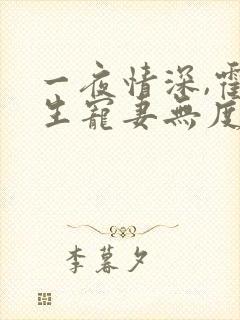 一夜情深,霍
生寵妻無度
李暮夕